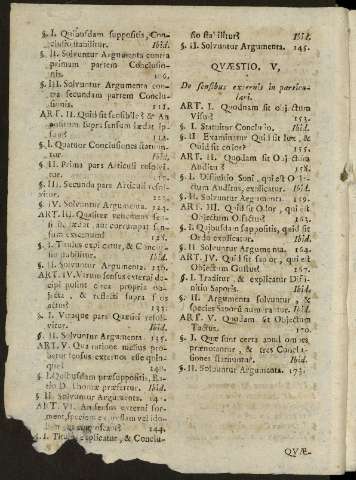 §. I. Quibusdam suppositis, Con-
clusio stabilitur. Ibid.
§. II. Solvuntur Argumenta contra
primum partem Conclusio-
nis. 106.
§. III. Solvuntur Argumenta con-
tra secundam partem Conclu-
sionis.
ART. II. Quid sit sensibile? & An
positum supra sensum
§. I. Quatuor Conclusiones statuun-
tur. Ibid.
§. II. Prima pars Articuli resolvi-
tur.
§. III. Secunda pars Articuli resol-
vitur.
§. IV. Solvuntur Argumenta. 124.
ART. III.
sum
§. I. Titulus explicatur, & Conclu-
sio stabilitur. Ibid.
§. II. Solvuntur Argumenta. 130.
ART. IV. Utrum sensus externi de-
cipi possint circa propria ob-
jecta, & reflecti supra suos
actus? 133.
§. I. Utraque pars Quæsiti resol-
vitur. Ibid.
§. II. Solvuntur Argumenta. 135.
ART. V. Qua ratione melius pro-
betur sensus externos esse quin-
que?
§. I. Quibusdam præsuppositis, Ra-
tio D. Thomæ præfertur. Ibid.
§. II. Solvuntur Argumenta. 142.
ART. VI. An sensus externi for-
ment speciem expressam vel
144.
§. I. Titulus explicatur, & Conclu-
sio stabilitur. Ibid.
§. II. Solvuntur Argumenta. 145.
QUÆSTIO. V,
De sensibus externis in particu-
lari.
ART. I. Quodnam sit objectum
Visus? 153.
§. I. Statuitur Conclusio. Ibid.
§. II Examinatur Quid sit lux, &
Quid sit color? 155.
ART. II. Quodnam sit Objectum
Auditus? 158.
§. I. Diffinitio Soni, qui est Obje-
ctum Auditus, explicatur. Ibid.
§. II. Solvuntur Argumenta. 159.
ART. III. Quid sit Odor, qui est
Objectum Olfactus? 163.
§. I. Quibusdam suppositis, quid sit
Odor explicatur. Ibid.
§. II. Solvuntur Argumenta. 164.
ART. IV. Quid sit sapor, qui est
Objectum Gustus? 167.
§. I. Traditur, & explicatur Diffi-
nitio Saporis. Ibid.
§. II Argumenta solvuntur, &
species Saporis numerantur. Ibid.
ART. V. Quodnam sit Objectum
Tactus. 170.
§. I. Quæ sint certa apud omnes
prænotantur, & tres Conclu-
siones statuuntur. Ibid.
§. II. Solvuntur Argumenta. 173.
QUÆ-